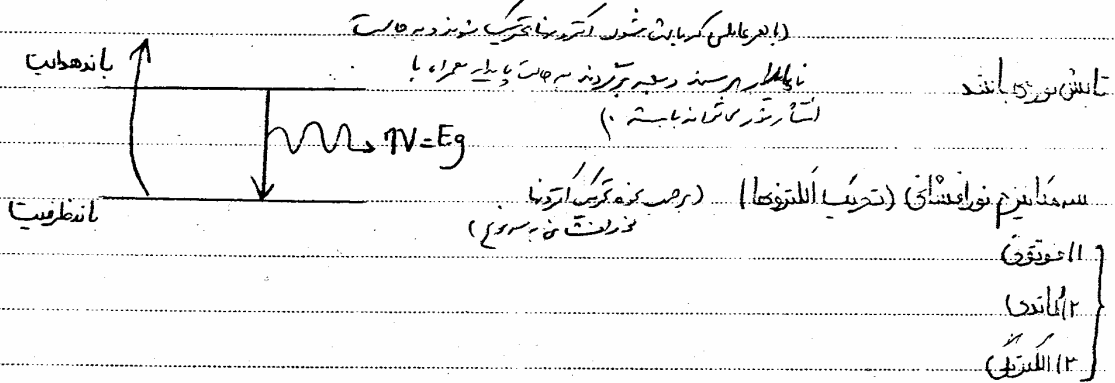 (با هر عاملی که باعث شود الکترونها تحریک شوند و به حالت
ناپایدار برسند و سپس برگردند به حالت پایدار همراه با
انتشار نور می تواند باشد.)
تابش نوری باشد
باند هدایت
ηV=Eg
باند ظرفیت
سه مکانیزم نورافشانی (تحریک الکترونها) (برحسب نحوه تحریک الکترونها
نورافشانی به سه نوع)
۱) فوتونی
۲) کاتدی
۳) الکتریکی